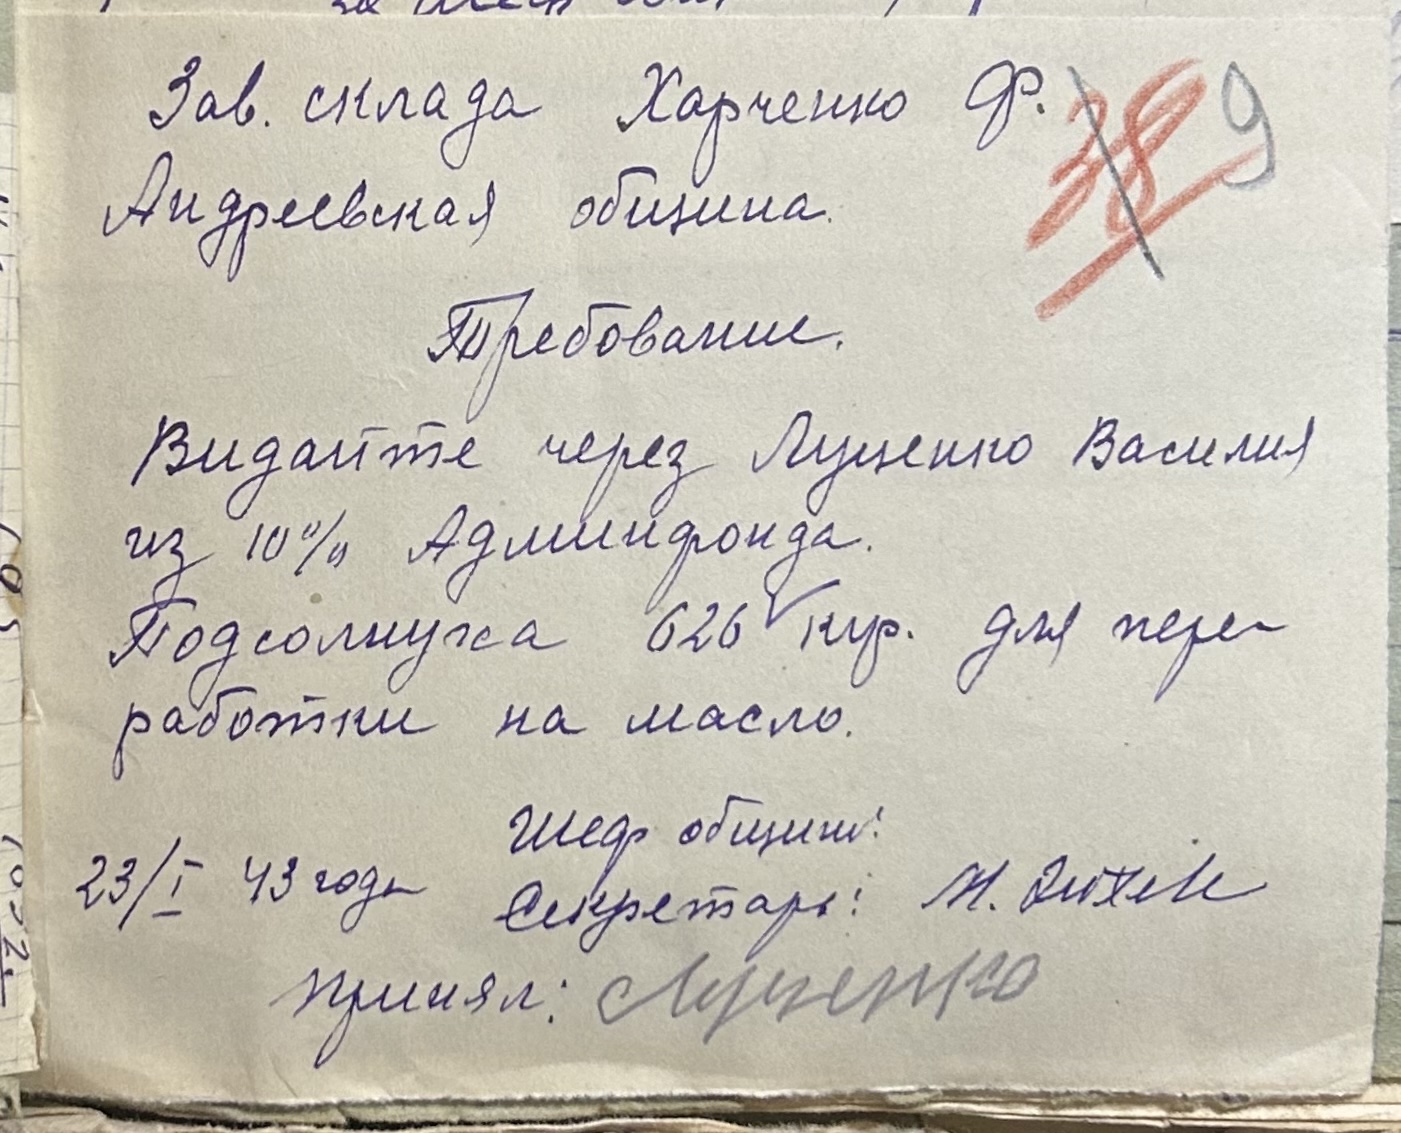 Зав. склада Харченко Ф. 38 9
Андреевская община.
Требование.
Видайте через Луценко Василия
из 10% Админфонда.
Подсолнуха 626 кгр. для пере-
работки на масло.
Шеф общины:
23/I 43 года Секретарь: Н.
Принял: Луценко